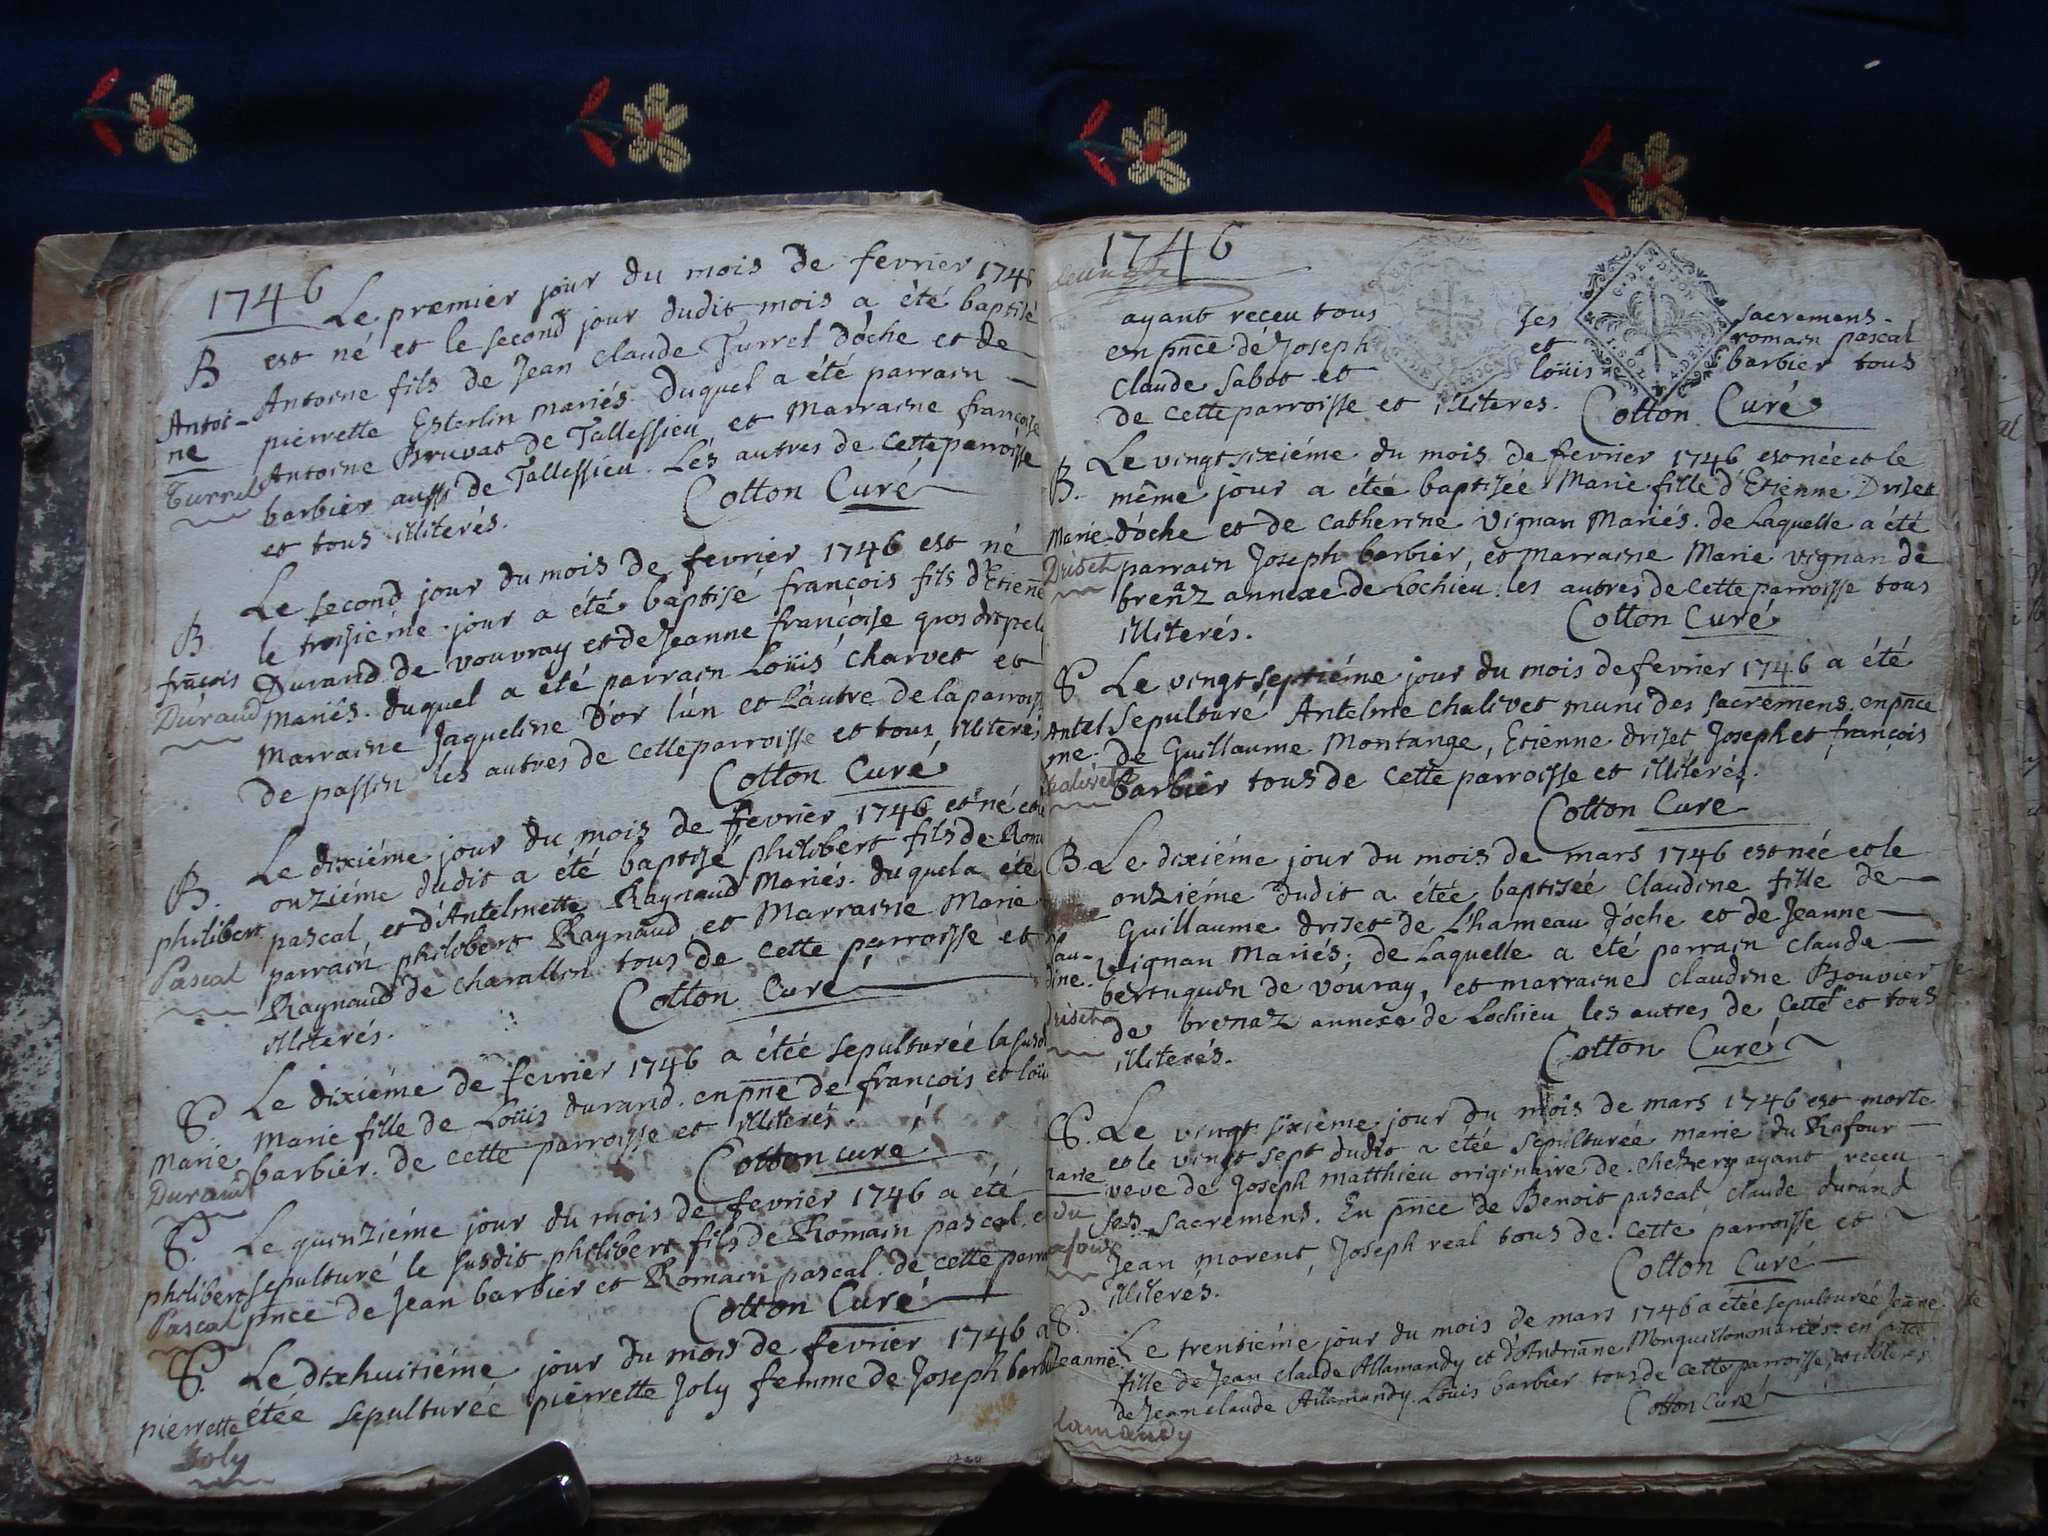 1746
Le premier jour du mois de fevrier 1746
B est né et le second jour dudit mois a été baptisé
Antoi- Antoine fils de Jean Claude Turrel d'óche et de
ne pierrette Esterlin mariés. duquel a été parrain
Turrel Antoine Bruvat de Tallessieu et Marraine françoise
barbier aussi de Tallessieu. Les autres de cette parroisse
et tous illiterés. Cotton Curé
Le second jour du mois de fevrier 1746 est né
B. le troisiéme jour a été baptisé françois fils d'Etiene
françois Durand de vouvray et de Jeanne françoise gros
Durand Mariés. duquel a été parrain Loüis charvet et
Marraine Jaqueline D'or l'un et l'autre de la parroisse
de passin les autres de cette parroisse et tous illiterés
Cotton Curé
Le dixiéme jour du mois de fevrier 1746 est né et le
B. onziéme dudit a été baptisé philibert fils de Romain
philibert pascal et d'Antelmette Raynaud Mariés. duquel a été
Pascal parrain philibert Raynaud et Marraine Marie
Raynaud de charallin tous de cette parroisse et
illiterés. Cotton Curé
S. Le dixiéme de fevrier 1746 a étée sepulturée la susd
Marie Marie fille de Loüis durand. en pñce de françois et loüis
Durand barbier. de cette parroisse et illiterés.
Cotton curé
S. Le quinziéme jour du mois de fevrier 1746 a été
philibert sepulturé le susdit philibert fils de Romain pascal. en
Pascal pñce de Jean barbier et Romain pascal de cette parroisse
Cotton Curé
S. Le dixhuitiéme jour du mois de fevrier 1746 a
pierrette étée sepulturée pierrette Joly femme de Joseph barbier
Joly
1746
ayant receu tous les sacremens
en pñce de Joseph et romain pascal
Claude Sabot et loüis barbier tous
de cette parroisse et illiteres. Cotton Curé
G. DE DIJON
Le vingt sixiéme du mois de fevrier 1746 est née et le
B. même jour a étée baptisée Marie fille d'Etienne Driset
Marie d'óche et de Catherine vignan Mariés. de Laquelle a été
Driset parrain Joseph barbier, et marraine Marie vignan de
brenaz annexe de Lochieu. les autres de cette parroisse tous
illiterés. Cotton Curé
S. Le vingt septiéme jour du mois de fevrier 1746 a été
Antel sepulturé Antelme chalivet muni des sacremens. en pñce
me. de Guillaume Montange, Etienne driset, Joseph et françois
chalivet barbier tous de cette parroisse et illiterés.
Cotton Curé
B. Le dixiéme jour du mois de mars 1746 est née et le
onziéme dudit a étée baptisée Claudine fille de
Clau- Guillaume driset de L'hameau d'óche et de Jeanne
dine. Vignan Mariés; de Laquelle a été parrain Claude
bertuquin de vouray, et marraine claudine Bouvier
driset de brenaz annexe de Lochieu les autres de cette et tous
illiterés. Cotton Curé
S. Le vingt sixiéme jour du mois de mars 1746 est morte
et le vingt sept dudit a étée sepulturée marie du Rafour
Marie veve de Joseph matthieu originaire de chezery ayant receu
du ses sacremens. En pñce de Benoit pascal, claude durand
rafour Jean morent, Joseph real tous de cette parroisse et
illiterés. Cotton Curé
S. Le trentiéme jour du mois de mars 1746 a étée sepulturée Jeane
Jeanne. fille de Jean claude Allamandy et d'Andriane Monguillon mariés. en pñce
de Jean claude Allamandy. Loüis barbier tous de cette parroisse, et illiterés
lamandy Cotton Curé